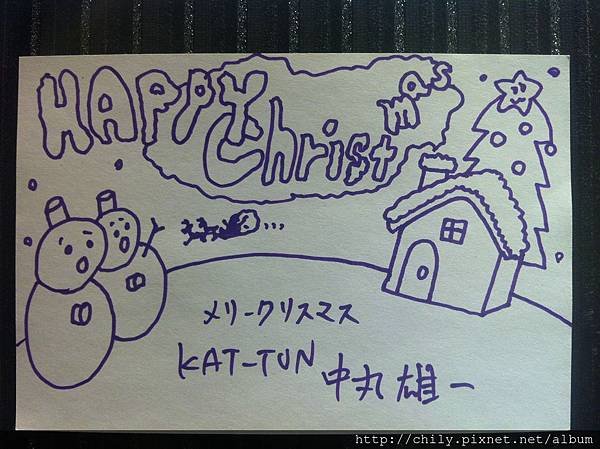 HAPPY
Christmas
メリークリスマス
KAT-TUN 中丸 雄一
http://chily.pixnet.net/album